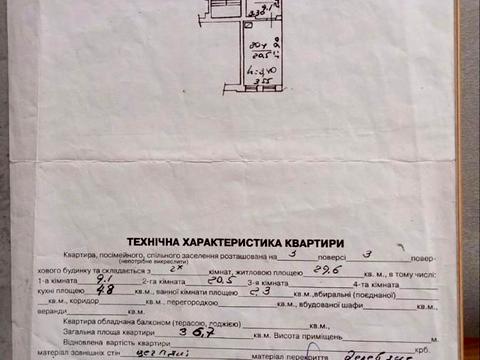 9.1
2.30
20.5
3.55
ТЕХНІЧНА ХАРАКТЕРИСТИКА КВАРТИРИ
Квартира, посімейного, спільного заселення розташована на 3 поверсі 3 повер-
(непотрібне викреслити)
хового будинку та складається з 2х кімнат, житловою площею 29.6 кв. м., в тому числі:
1-а кімната 9.1 кв. м., 2-га кімната 20,5 кв. м., 3-я кімната кв. м., 4-та кімната
кухні площею 4.8 кв. м., ванної кімнати 2.3 кв. м., вбиральні (поєднаної)
кв. м., коридор кв. м., перегородкою кв. м., вбудованої шафи кв. м.,
веранди кв. м.
Квартира обладнана балконом (терасою, лоджією) кв. м.
Загальна площа квартири 36,7 кв.м. Висота приміщень м.
Відновлена вартість квартири крб.
матеріал зовнішніх стін цегляні матеріал перекриття